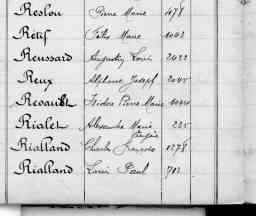 Reslou Pierre Marie 478
Rétif Félix Marie 1003
Reussard Augustin Louis 2022
Reux Alphonse Joseph 2045
Revault Isidore Pierre Marie
Rialet Alexandre Marie 225
Rialland Charles François 1278
Rialland Louis Paul 712